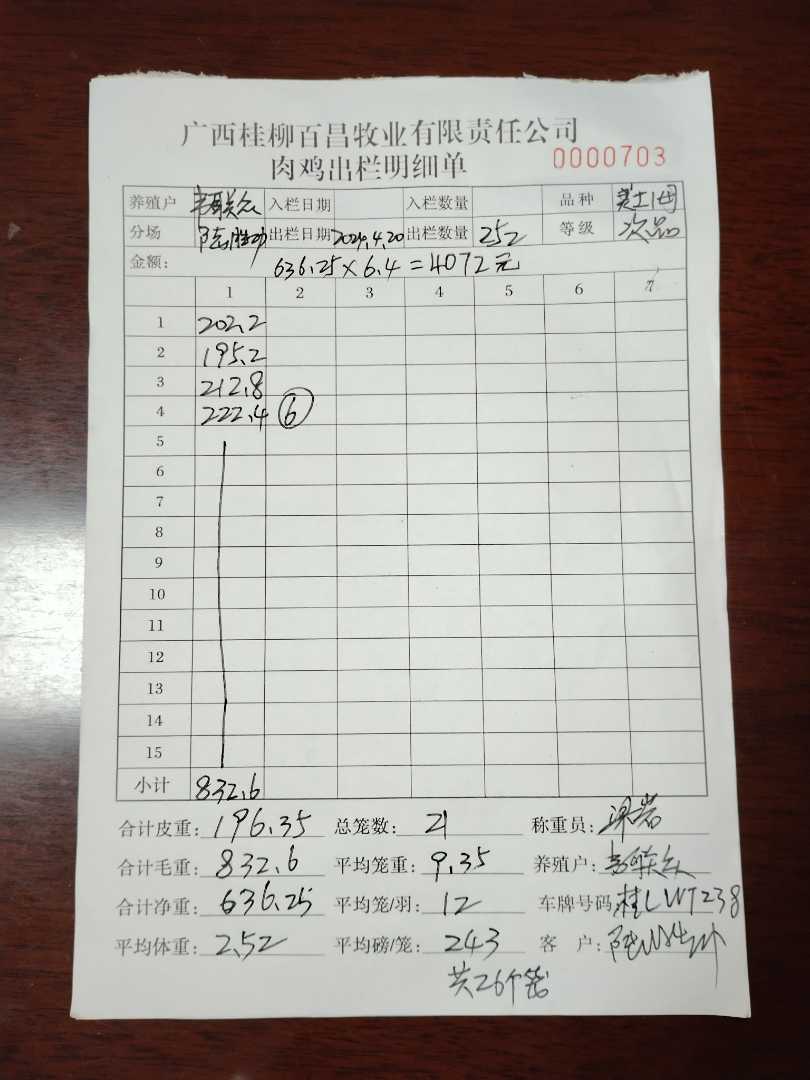 广西桂柳百昌牧业有限责任公司
肉鸡出栏明细单 0000703
养殖户 韦联众 入栏日期 入栏数量 品种
分场 出栏日期 2024.4.20 出栏数量 252 等级 次品
金额: 636.25×6.4=4072元
1 2 3 4 5 6 7
1 202.2
2 195.2
3 212.8
4 222.4 ⑥
5
6
7
8
9
10
11
12
13
14
15
小计 832.6
合计皮重: 196.35 总笼数: 21 称重员:
合计毛重: 832.6 平均笼重: 9.35 养殖户: 韦联众
合计净重: 636.25 平均笼/羽: 12 车牌号码: 桂LWT238
平均体重: 2.52 平均磅/笼: 243 客 户:
共26个笼